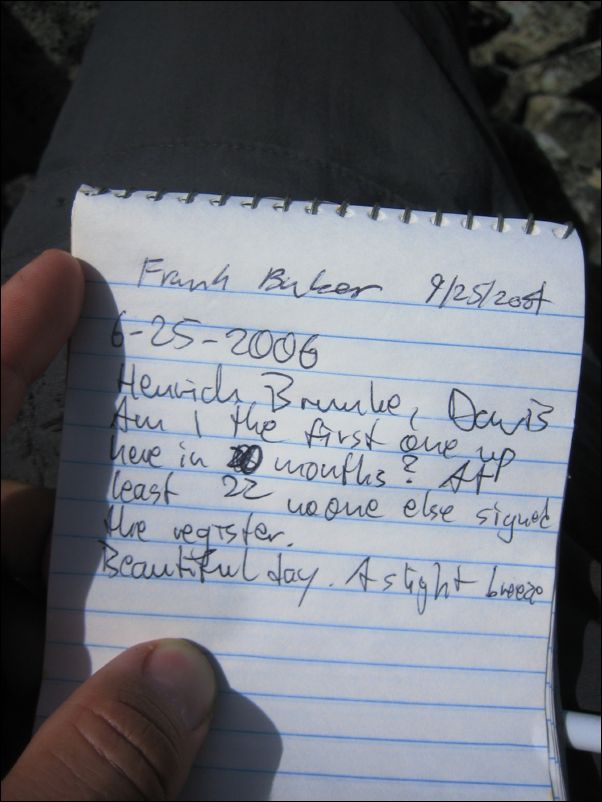 Frank Buker 9/25/2004
6-25-2006
Henrich Brunke, Davis
Am I the first one up
here in months? At
least 22 noone else signed
the register.
Beautiful day. A slight breeze